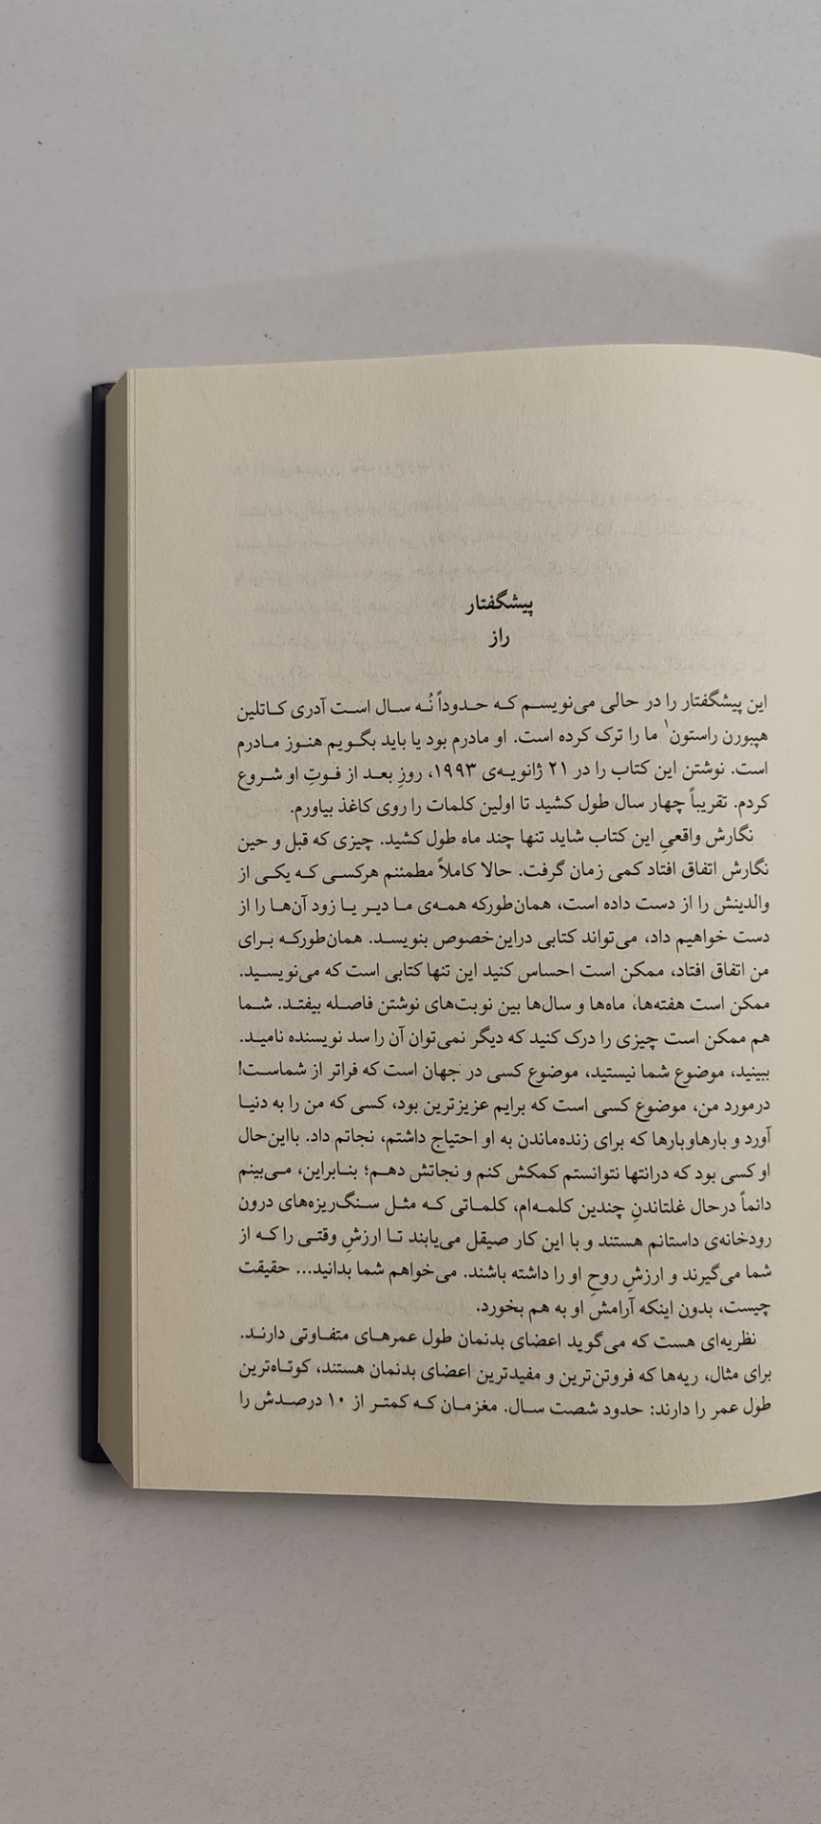 پیشگفتار
راز
این پیشگفتار را در حالی می‌نویسم که حدوداً نُه سال است آدری کاتلین
هپبورن راستون۱ ما را ترک کرده است. او مادرم بود یا باید بگویم هنوز مادرم
است. نوشتن این کتاب را در ۲۱ ژانویه‌ی ۱۹۹۳، روزِ بعد از فوتِ او شروع
کردم. تقریباً چهار سال طول کشید تا اولین کلمات را روی کاغذ بیاورم.
نگارش واقعیِ این کتاب شاید تنها چند ماه طول کشید. چیزی که قبل و حین
نگارش اتفاق افتاد کمی زمان گرفت. حالا کاملاً مطمئنم هرکسی که یکی از
والدینش را از دست داده است، همان‌طورکه همه‌ی ما دیر یا زود آن‌ها را از
دست خواهیم داد، می‌تواند کتابی دراین‌خصوص بنویسد. همان‌طورکه برای
من اتفاق افتاد، ممکن است احساس کنید این تنها کتابی است که می‌نویسید.
ممکن است هفته‌ها، ماه‌ها و سال‌ها بین نوبت‌های نوشتن فاصله بیفتد. شما
هم ممکن است چیزی را درک کنید که دیگر نمی‌توان آن را سد نویسنده نامید.
ببینید، موضوع شما نیستید، موضوع کسی در جهان است که فراتر از شماست!
درمورد من، موضوع کسی است که برایم عزیزترین بود، کسی که من را به دنیا
آورد و بارهاوبارها که برای زنده‌ماندن به او احتیاج داشتم، نجاتم داد. بااین‌حال
او کسی بود که درانتها نتوانستم کمکش کنم و نجاتش دهم؛ بنابراین، می‌بینم
دائماً درحال غلتاندنِ چندین کلمه‌ام، کلماتی که مثل سنگ‌ریزه‌های درون
رودخانه‌ی داستانم هستند و با این کار صیقل می‌یابند تا ارزشِ وقتی را که از
شما می‌گیرند و ارزشِ روحِ او را داشته باشند. می‌خواهم شما بدانید... حقیقت
چیست، بدون اینکه آرامش او به هم بخورد.
نظریه‌ای هست که می‌گوید اعضای بدنمان طول عمرهای متفاوتی دارند.
برای مثال، ریه‌ها که فروتن‌ترین و مفیدترین اعضای بدنمان هستند، کوتاه‌ترین
طول عمر را دارند: حدود شصت سال. مغزمان که کمتر از ۱۰ درصدش را